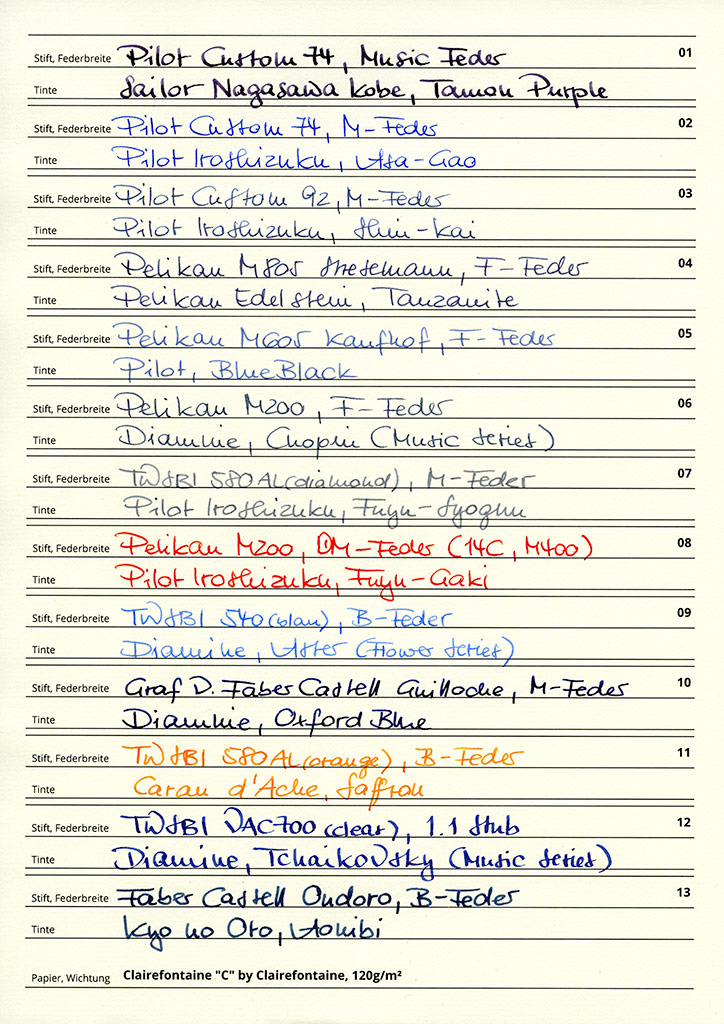 Stift, Federbreite Pilot Custom 74, Music Feder 01
Tinte Sailor Nagasawa Kobe, Tamon Purple
Stift, Federbreite Pilot Custom 74, M-Feder 02
Tinte Pilot Iroshizuku, Asa-Gao
Stift, Federbreite Pilot Custom 92, M-Feder 03
Tinte Pilot Iroshizuku, Shin-Kai
Stift, Federbreite Pelikan M805 Stresemann, F-Feder 04
Tinte Pelikan Edelstein, Tanzanite
Stift, Federbreite Pelikan M605 Kaufhof, F-Feder 05
Tinte Pilot, BlueBlack
Stift, Federbreite Pelikan M200, F-Feder 06
Tinte Diamine, Chopin (Music Series)
Stift, Federbreite TWSBI 580AL(diamond), M-Feder 07
Tinte Pilot Iroshizuku, Fuyu-Syogun
Stift, Federbreite Pelikan M200, OM-Feder (14C, M400) 08
Tinte Pilot Iroshizuku, Fuyu-Gaki
Stift, Federbreite TWSBI 540(blau), B-Feder 09
Tinte Diamine, Aster (Flower Series)
Stift, Federbreite Graf D. Faber Castell Guilloche, M-Feder 10
Tinte Diamine, Oxford Blue
Stift, Federbreite TWSBI 580AL(orange), B-Feder 11
Tinte Caran d'Ache, Saffron
Stift, Federbreite TWSBI VAC700 (clear), 1.1 Stub 12
Tinte Diamine, Tchaikovsky (Music Series)
Stift, Federbreite Faber Castell Ondoro, B-Feder 13
Tinte Kyo no Oto, Aonibi
Papier, Wichtung Clairefontaine "C" by Clairefontaine, 120g/m²